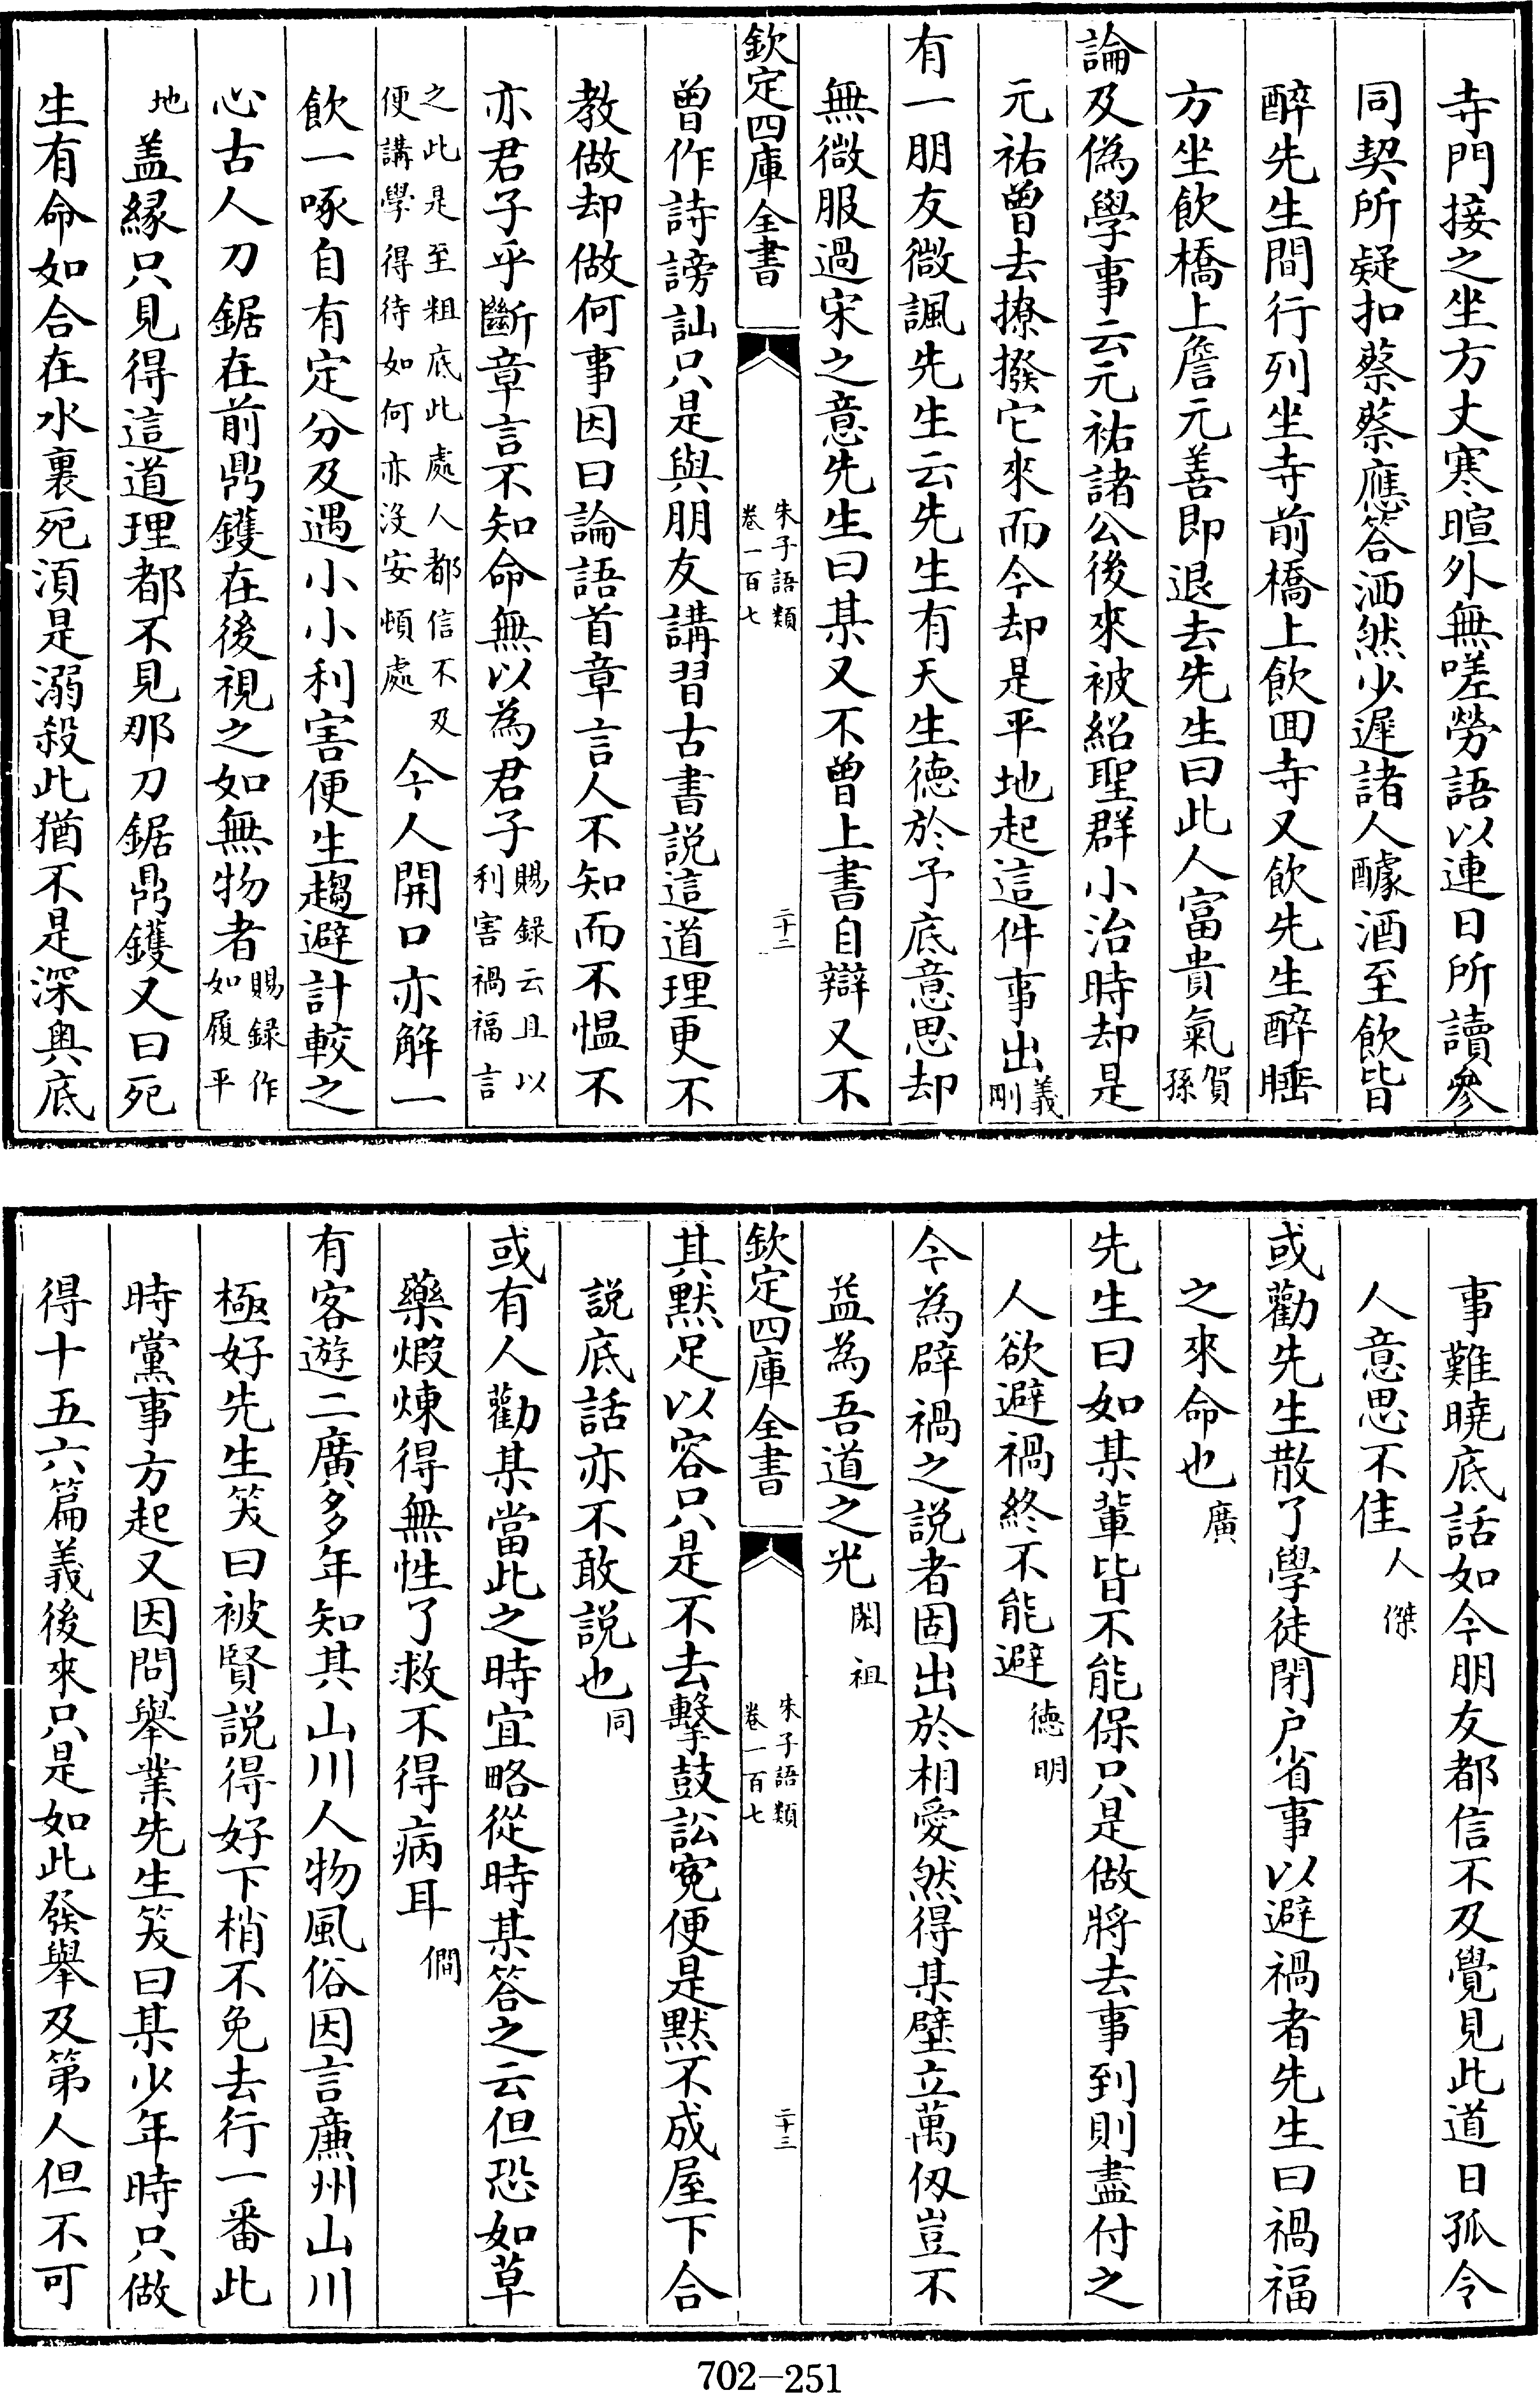 寺門接之坐方丈寒暄外無嗟勞語以連日所讀參
同契所疑扣蔡蔡應答洒然少遲諸人醵酒至飲皆
醉先生間行列坐寺前橋上飲囬寺又飲先生醉睡
方坐飲橋上詹元善即退去先生曰此人富貴氣賀孫
論及偽學事云元祐諸公後來被紹聖群小治時却是
元祐曾去撩撥它來而今却是平地起這件事出義剛
有一朋友微諷先生云先生有天生德於予底意思却
無微服過宋之意先生曰某又不曾上書自辯又不
欽定四庫全書
朱子語類
卷一百七
二十二
曾作詩謗訕只是與朋友講習古書説這道理更不
教做却做何事因曰論語首章言人不知而不慍不
亦君子乎斷章言不知命無以為君子賜錄云且以利害禍福言
之此是至粗底此處人都信不及便講學得待如何亦沒安頓處今人開口亦解一
飲一啄自有定分及遇小小利害便生趨避計較之
心古人刀鋸在前鼎鑊在後視之如無物者賜錄作如履平
地盖緣只見得這道理都不見那刀鋸鼎鑊又曰死
生有命如合在水裏死湏是溺殺此猶不是深奥底
事難曉底話如今朋友都信不及覺見此道日孤令
人意思不佳人傑
或勸先生散了學徒閉户省事以避禍者先生曰禍福
之來命也廣
先生曰如某輩皆不能保只是做將去事到則盡付之
人欲避禍終不能避德明
今為辟禍之説者固出於相愛然得某壁立萬仭豈不
益為吾道之光閎祖
欽定四庫全書
朱子語類
卷一百七
二十三
其黙足以容只是不去擊鼓訟寃便是黙不成屋下合
説底話亦不敢説也同
或有人勸某當此之時宜略從時某答之云但恐如草
藥煆煉得無性了救不得病耳僩
有客遊二廣多年知其山川人物風俗因言亷州山川
極好先生笑曰被賢説得好下梢不免去行一番此
時黨事方起又因問舉業先生笑曰某少年時只做
得十五六篇義後來只是如此發舉及第人但不可
702-251